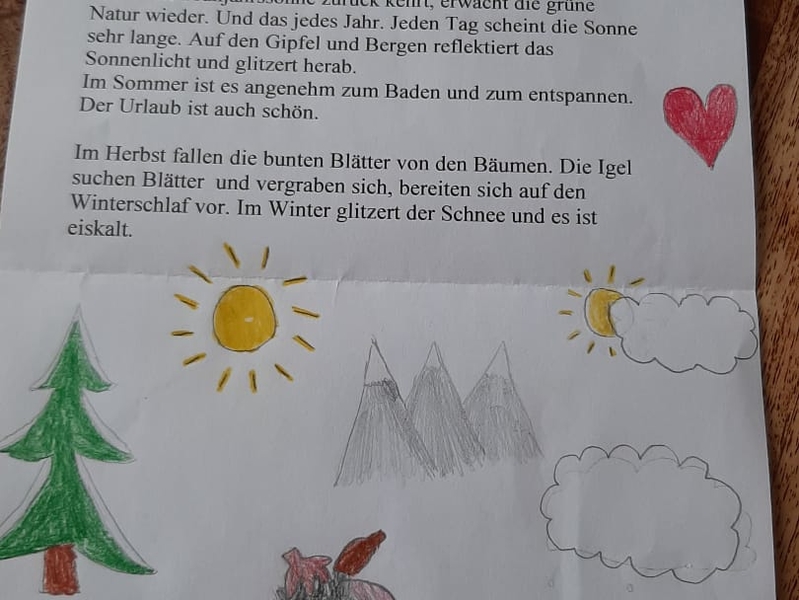 zurück kehrt, erwacht die grüne
Natur wieder. Und das jedes Jahr. Jeden Tag scheint die Sonne
sehr lange. Auf den Gipfel und Bergen reflektiert das
Sonnenlicht und glitzert herab.
Im Sommer ist es angenehm zum Baden und zum entspannen.
Der Urlaub ist auch schön.
Im Herbst fallen die bunten Blätter von den Bäumen. Die Igel
suchen Blätter  und vergraben sich, bereiten sich auf den
Winterschlaf vor. Im Winter glitzert der Schnee und es ist
eiskalt.